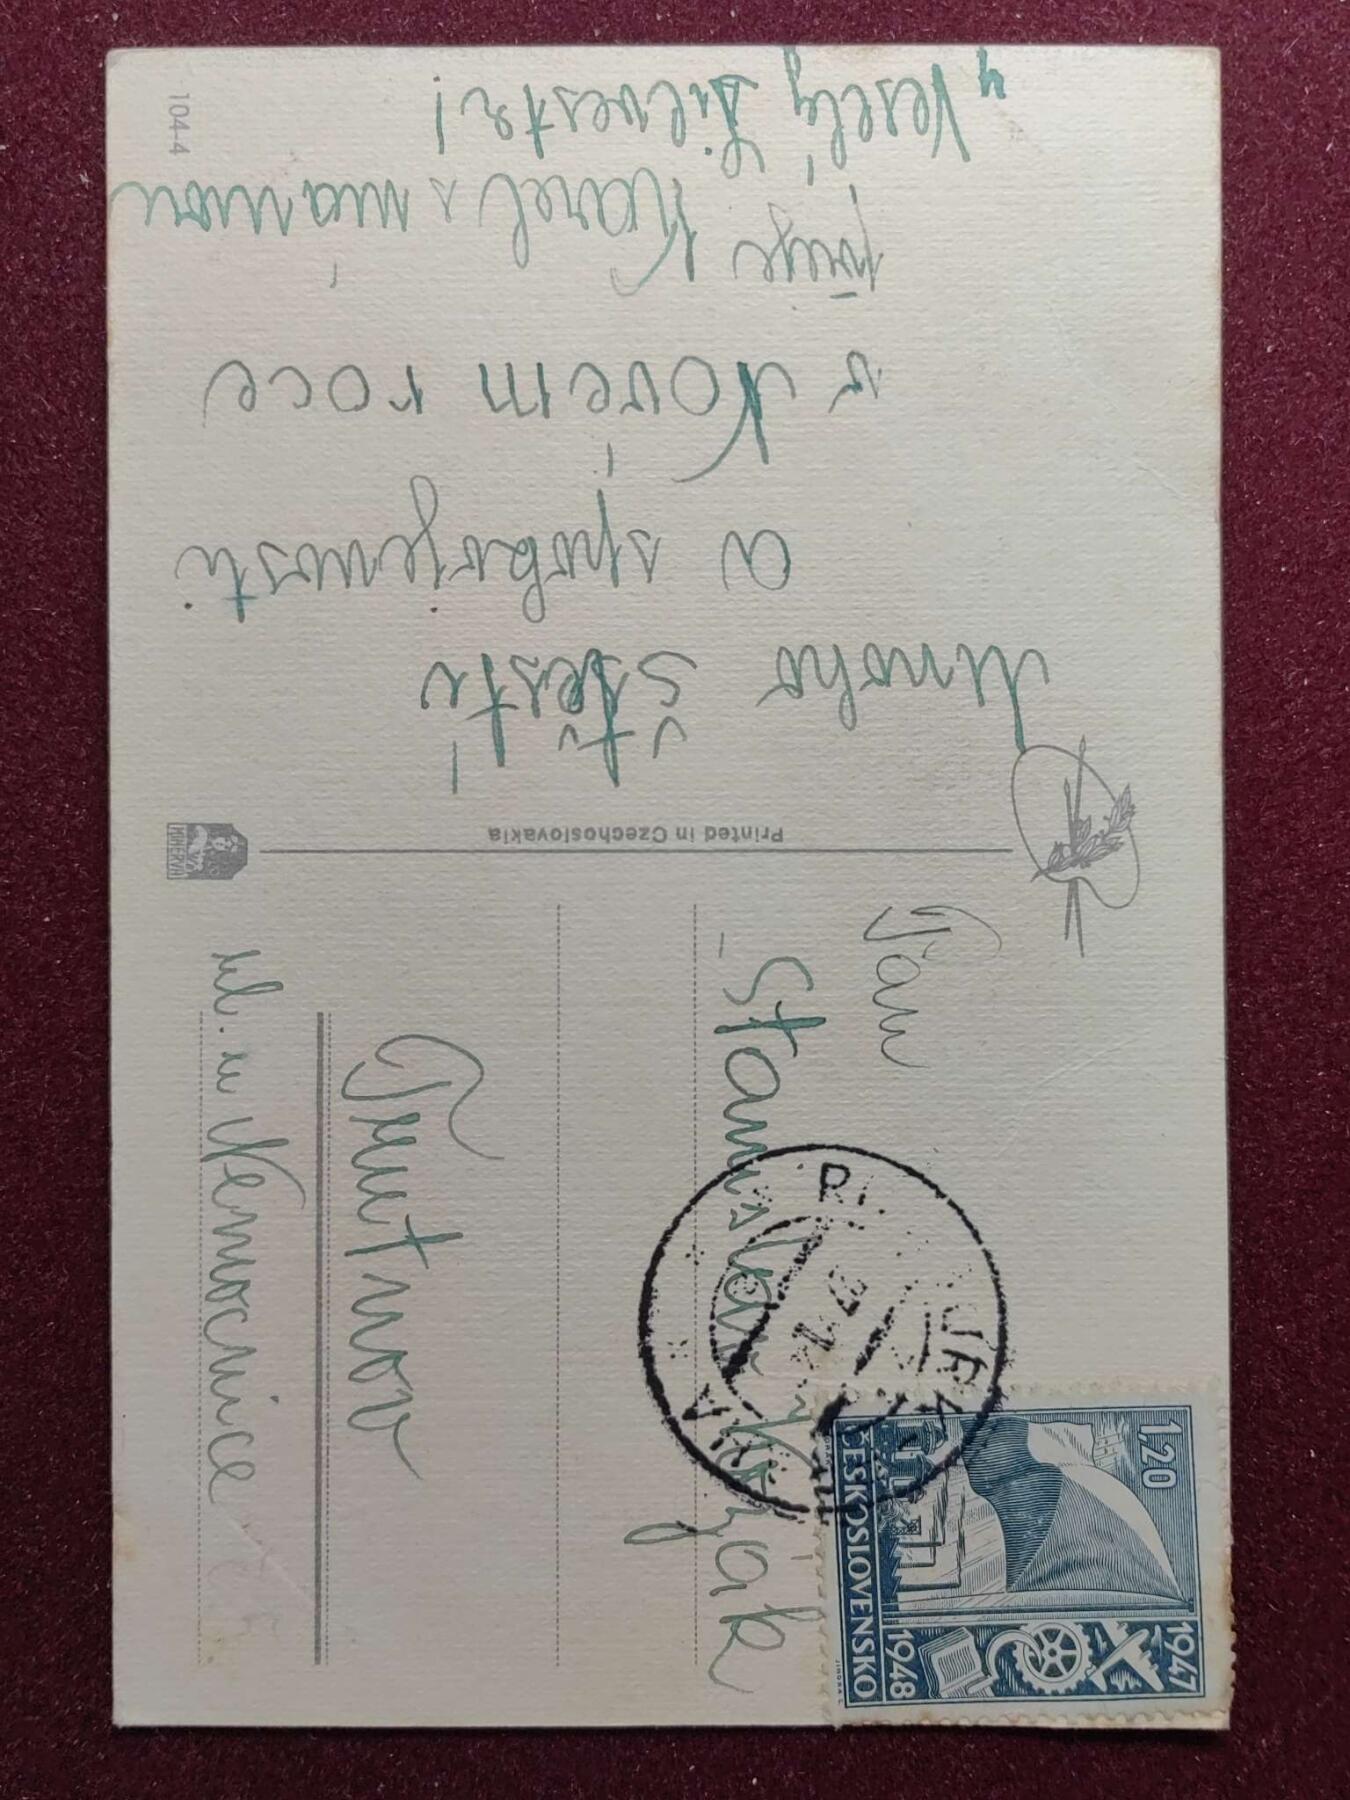 Mnoho štěstí
a spokojenosti
v Novém roce
přeje Karel s mámou
Veselý Silvestr!
1044
Printed in Czechoslovakia
MINERVA
Pan
Stanislav Kozják
Trutnov
v Nemocnici
1,20
ČESKOSLOVENSKO
1947
1948